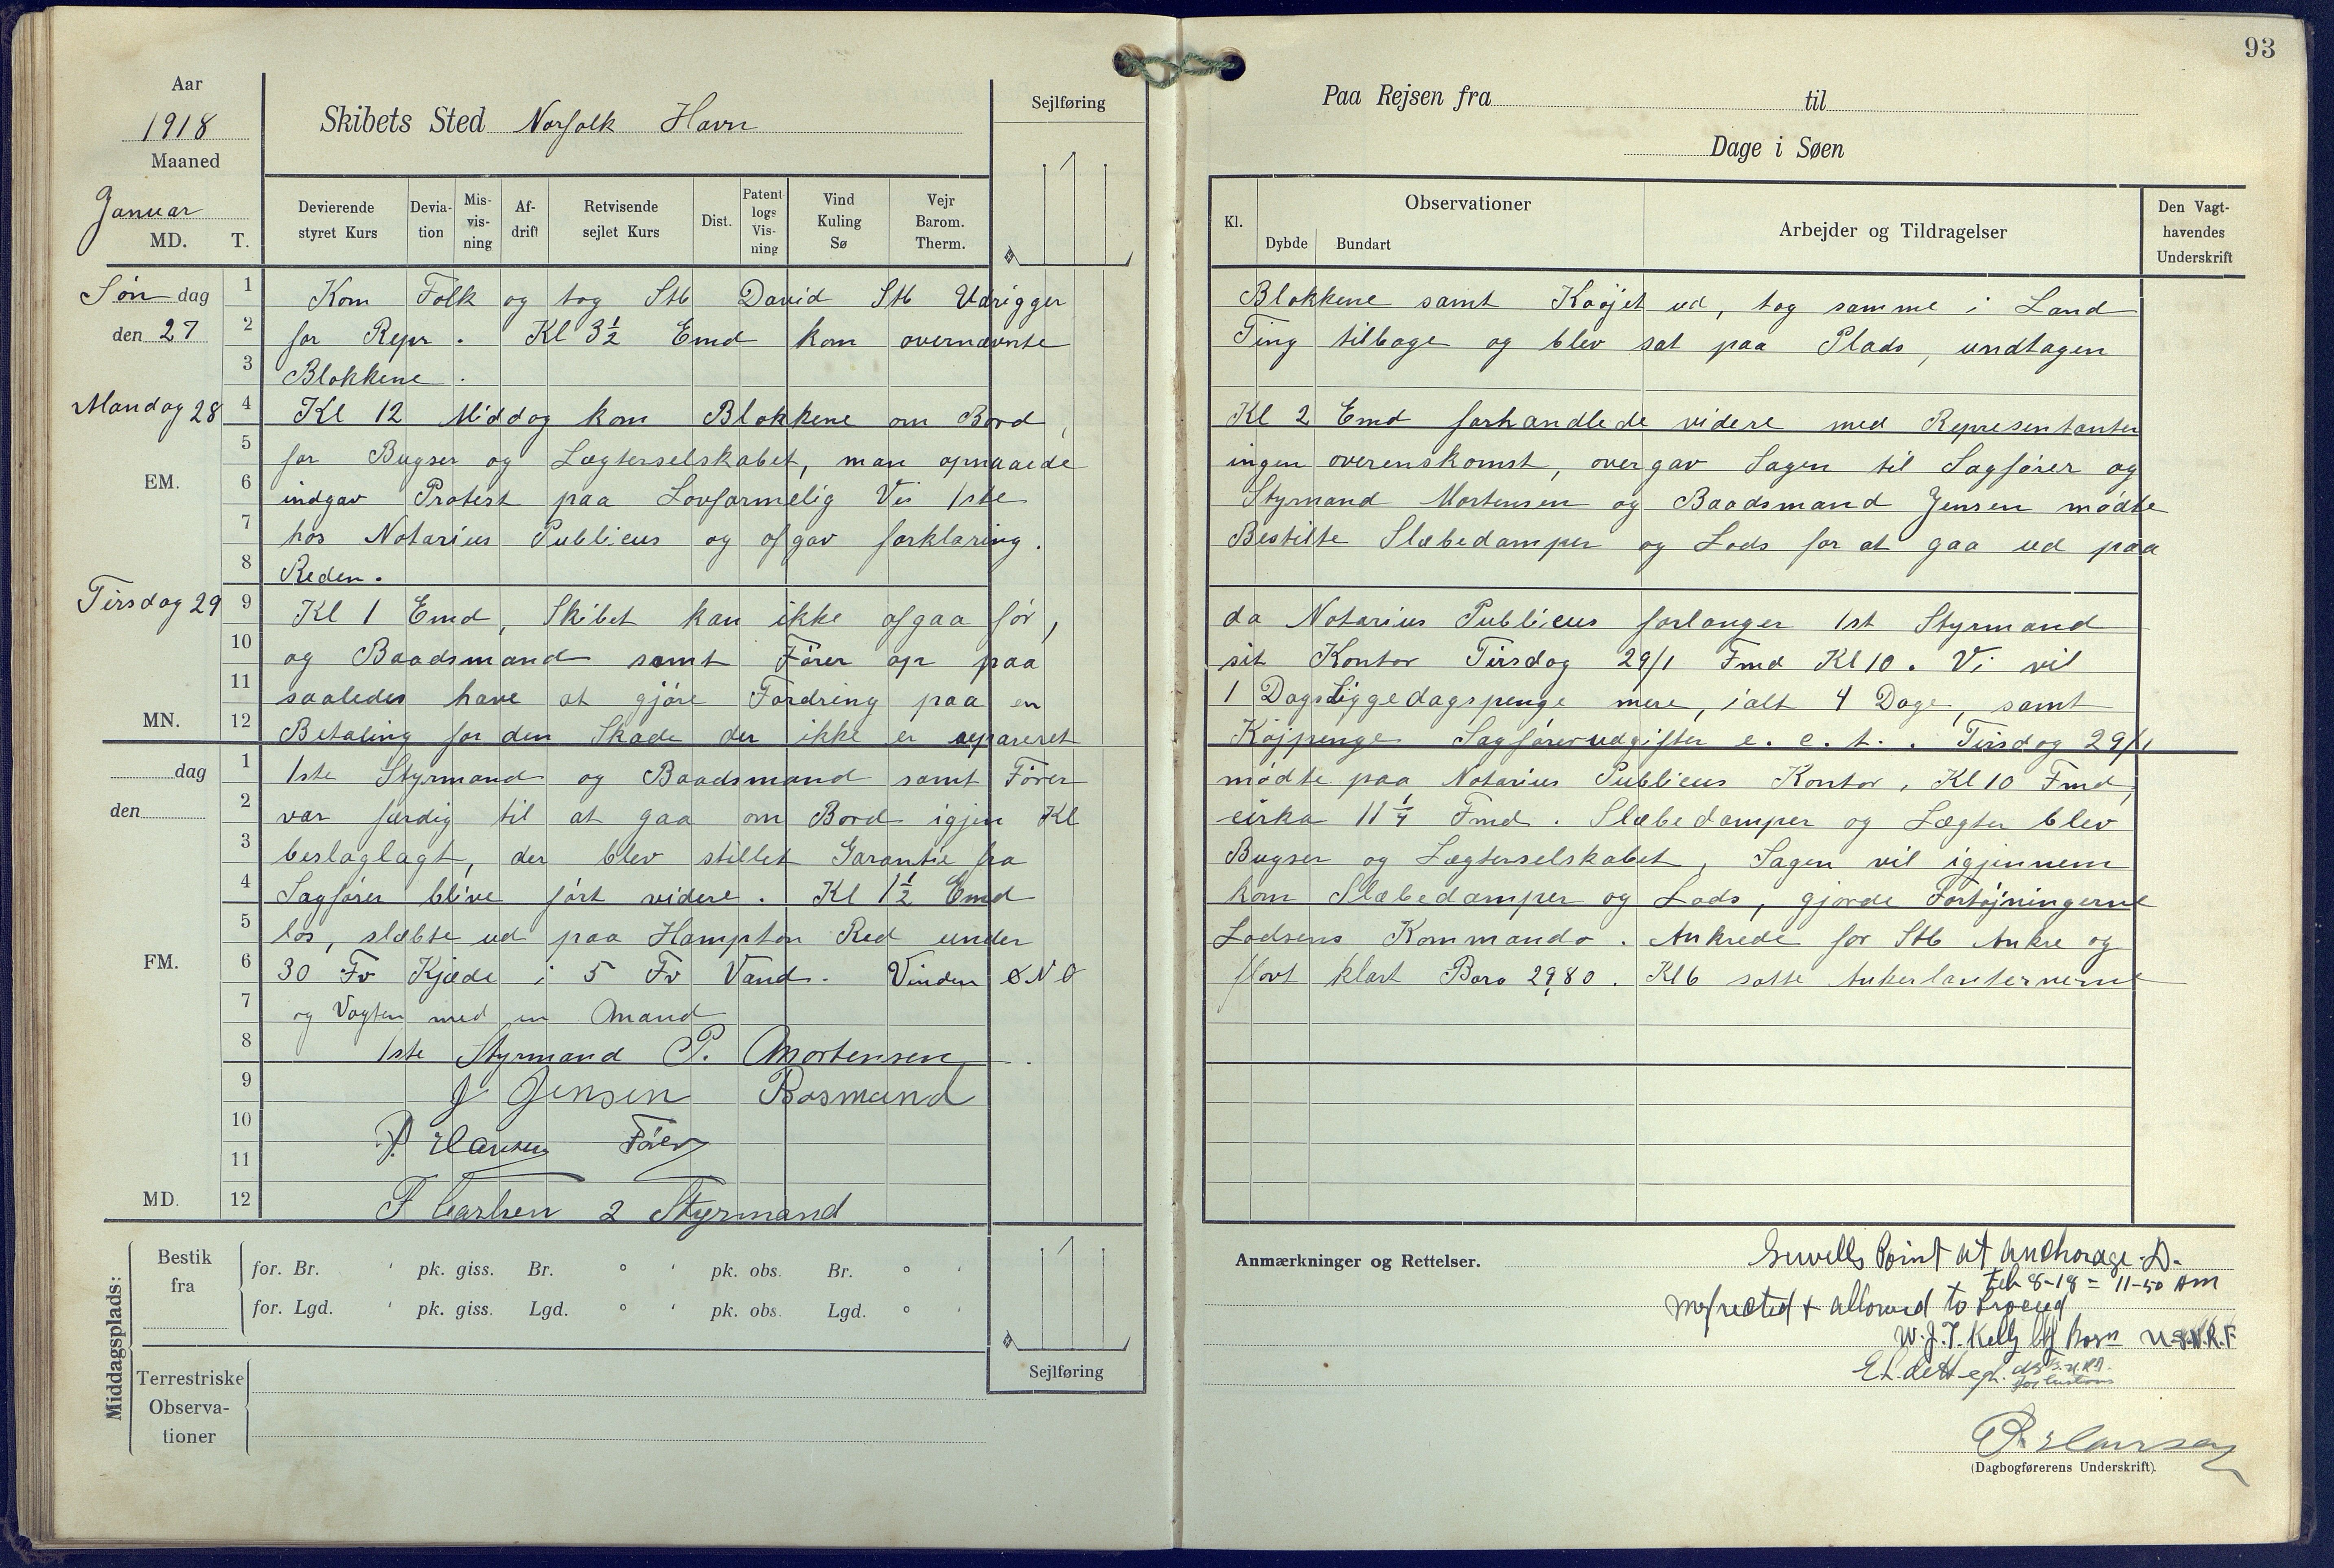 93
Aar
1918
Maaned
Januar
MD. T.
Skibets Sted Norfolk Havn
Sejlføring
Paa Rejsen fra til
Dage i Søen
Devierende styret Kurs
Devia- tion
Mis- vis- ning
Af- drift
Retvisende sejlet Kurs
Dist.
Patent logs Vis- ning
Vind Kuling Sø
Vejr Barom. Therm.
Kl.
Observationer
Dybde Bundart
Arbejder og Tildragelser
Den Vagt- havendes Underskrift
Søn dag 1 Kom Folk og tog Stb David Stb Udrigger Blokkene samt Køøjet ud, tog samme i Land
den 27 2 for Repr. Kl 3½ Emd kom overnævnte Ting tilbage og blev sat paa Plads, undtagen
3 Blokkene.
Mandag 28 4 Kl 12 Middag kom Blokkene om Bord, Kl 2 Emd forhandlede videre med Representanter
5 for Bugser og Lægterselskabet, man opnaaede ingen overenskomst, overgav Sagen til Sagfører og
EM. 6 indgav Protest paa Lovformelig Vis 1ste Styrmand Mortensen og Baadsmand Jensen mødte
7 hos Notarius Publicus og afgav forklaring. Bestilte Slæbedamper og Lods for at gaa ud paa
8 Reden.
Tirsdag 29 9 Kl 1 Emd, Skibet kan ikke afgaa før, da Notarius Publicus forlanger 1st Styrmand
10 og Baadsmand samt Fører op paa sit Kontor Tirsdag 29/1 Fmd Kl 10. Vi vil
11 saaledes have at gjøre Fordring paa en 1 Dags Liggedagspenge mere, ialt 4 Dage, samt
MN. 12 Betaling for den Skade der ikke er repareret Kajpenge Sagførerudgifter e. c. t. . Tirsdag 29/1
dag 1 1ste Styrmand og Baadsmand samt Fører mødte paa Notarius Publicus Kontor, Kl 10 Fmd,
den 2 var færdig til at gaa om Bord igjen Kl cirka 11¼ Fmd. Slæbedamper og Lægter blev
3 beslaglagt, der blev stillet Garantie fra Bugser og Lægterselskabet, Sagen vil igjennem
4 Sagfører blive ført videre. Kl 1½ Emd kom Slæbedamper og Lods, gjorde Fortøjningerne
5 los, slæbte ud paa Hampton Red under Lodsens Kommando. Ankrede for Stb Anker og
FM. 6 30 Fv Kjæde i 5 Fv Vand. Vinden ØNO flovt klart Baro 29,80. Kl 6 satte Ankerlanternerne
7 og Vagten med en Mand
8 1ste Styrmand P. Mortensen
9 J Jensen Bosmand
10 P. Hansen Fører
11
MD. 12 F Carlsen 2 Styrmand
Middagsplads:
Bestik fra
for. Br. ' pk. giss. Br. ° ' pk. obs. Br. ° '
for. Lgd. ' pk. giss. Lgd. ° ' pk. obs. Lgd. ° '
Terrestriske Observa- tioner
Sejlføring
Anmærkninger og Rettelser.
Sewells Point at anchorage D.
Feb 8-18 = 11-50 AM
Inspected & allowed to proceed
W. J. T. Kelly Bosn U.S.N.R.F.
for Customs
P. Hansen
(Dagbogførerens Underskrift).